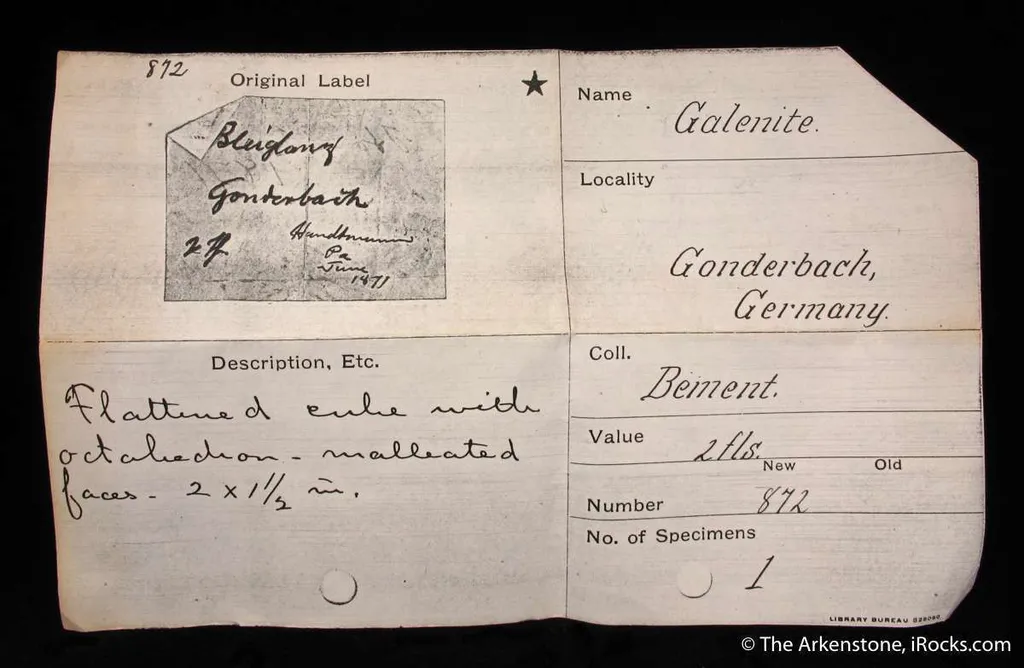 872
Original Label
★
Bleiglanz
Gonderbach
2 fl
Pa
June
1871
Description, Etc.
Flattened cube with
octahedron - malleated
faces - 2 x 1 1/2 in.
Name
Galenite.
Locality
Gonderbach,
Germany.
Coll.
Bement.
Value
2 fls.
New Old
Number 872
No. of Specimens
1
LIBRARY BUREAU
© The Arkenstone, iRocks.com